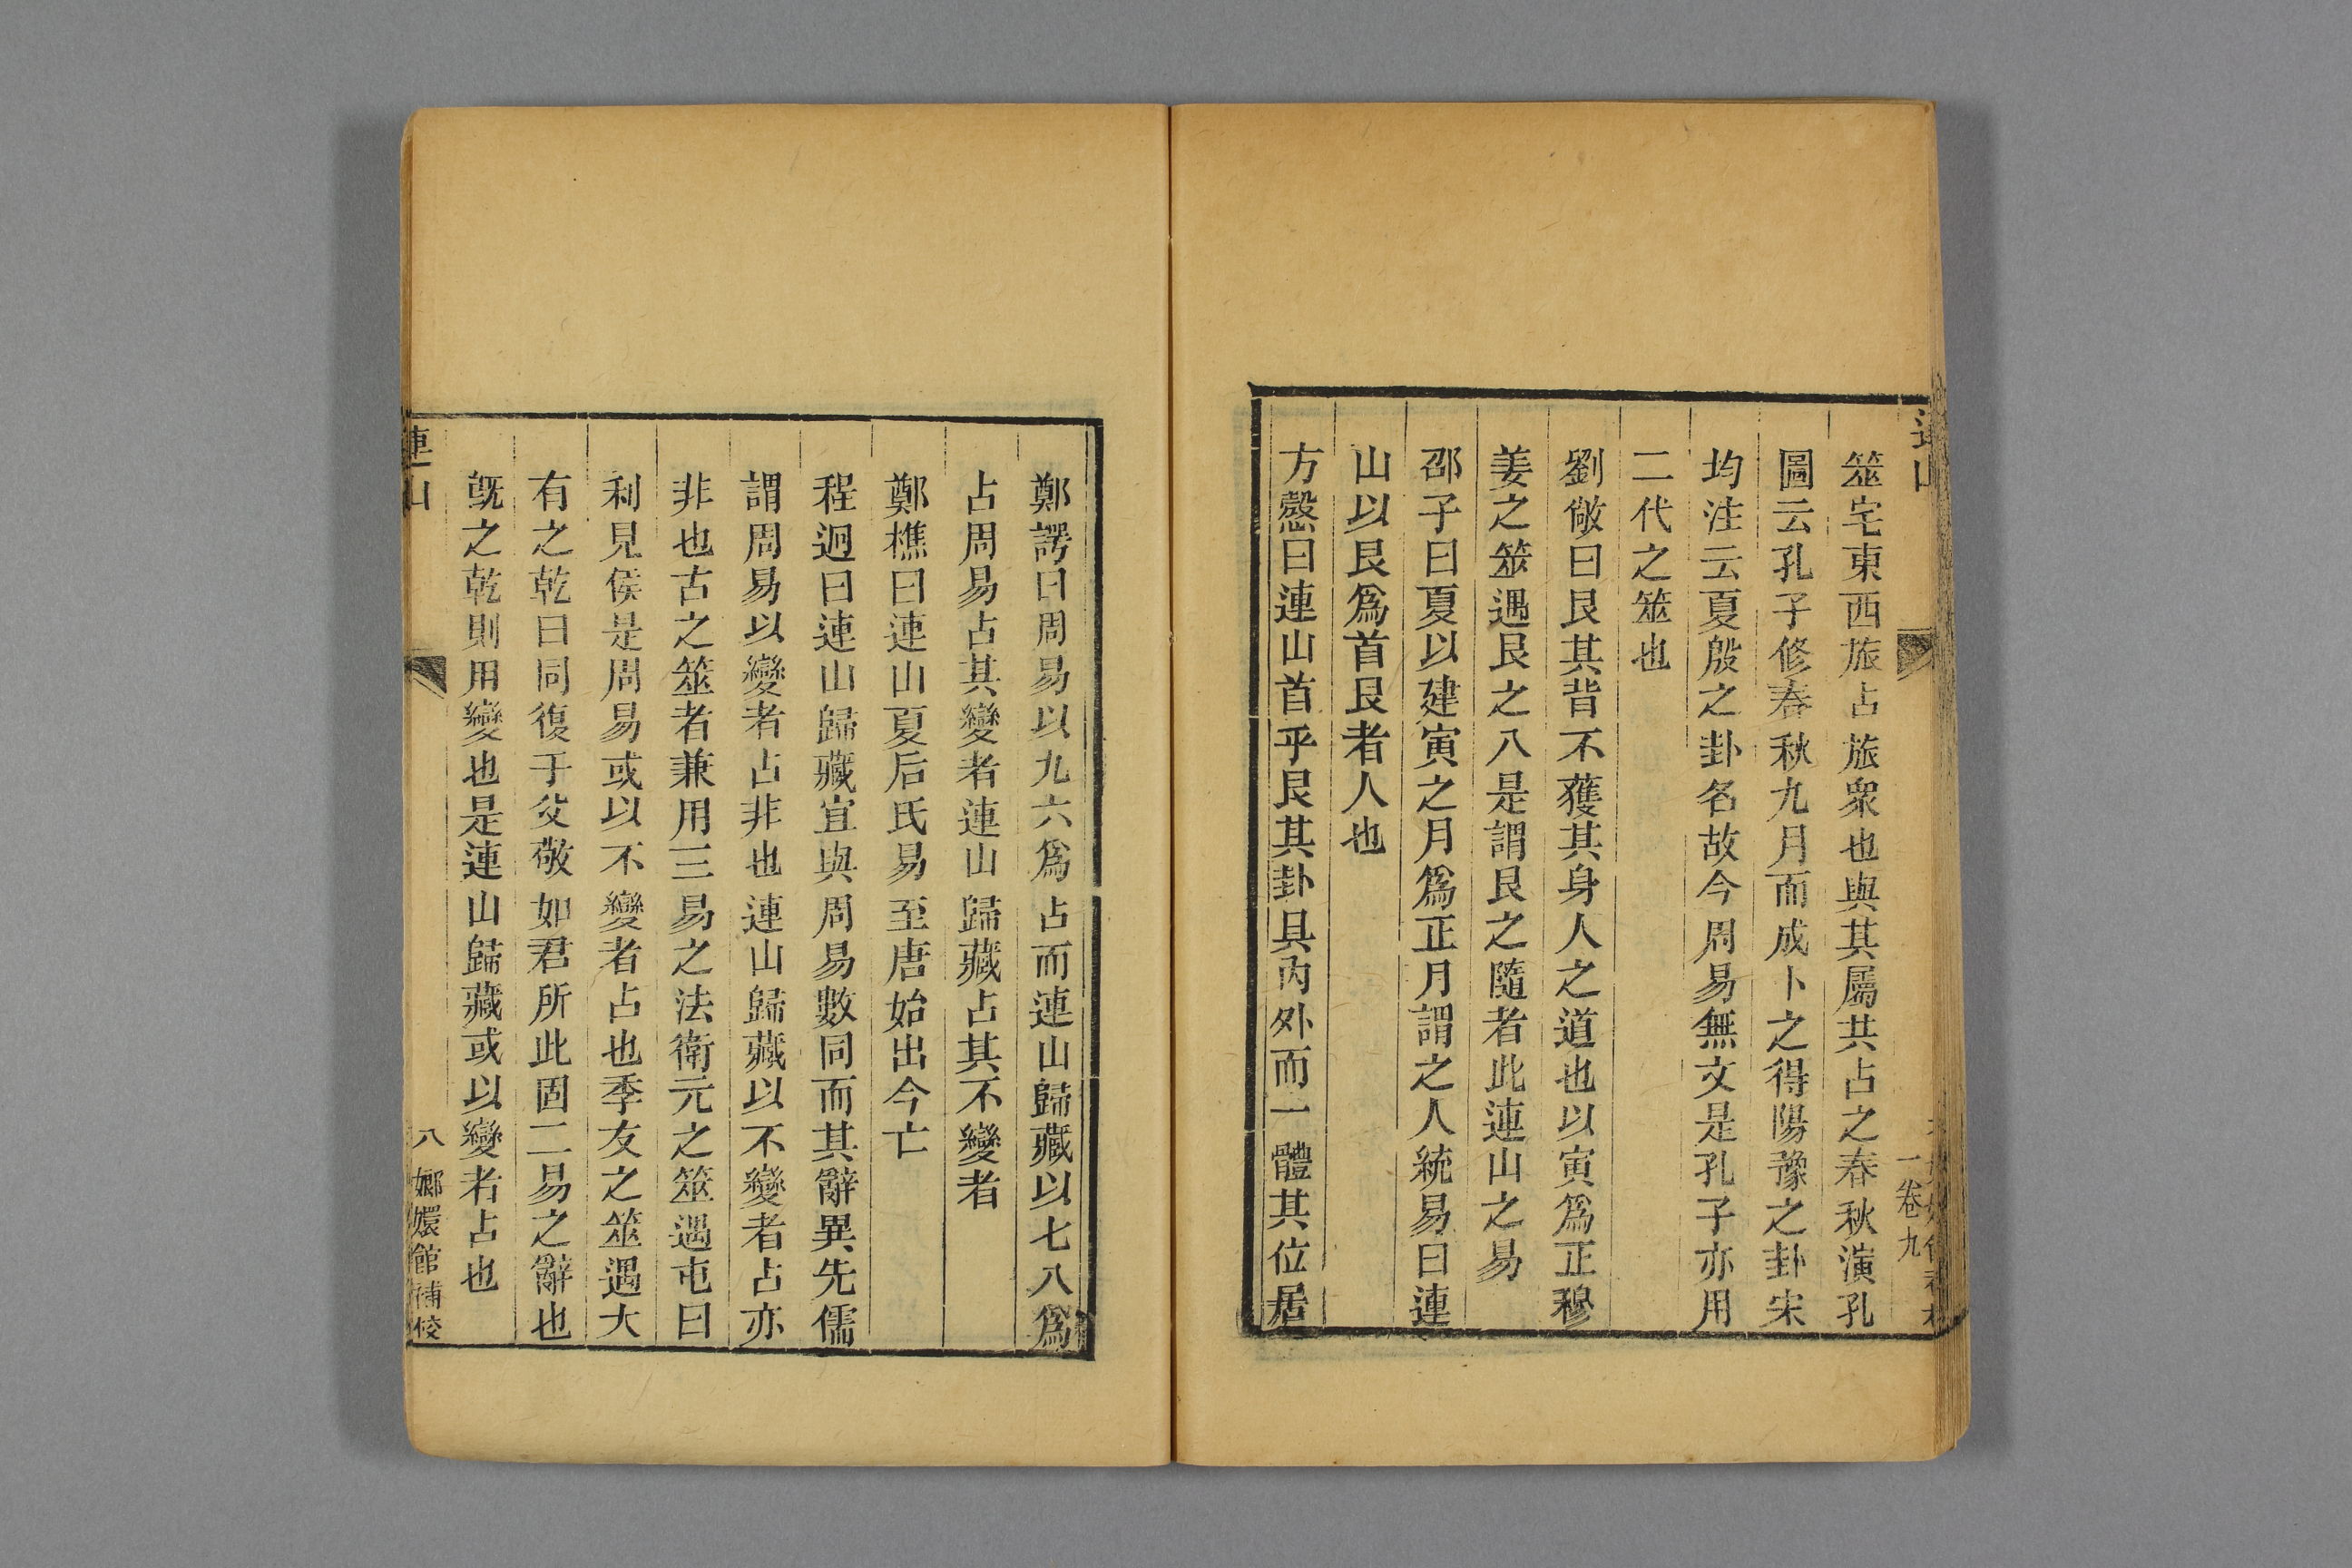 連山
筮宅東西旅占旅衆也與其屬共占之春秋演孔
圖云孔子修春秋九月而成卜之得陽豫之卦宋
均注云夏殷之卦名故今周易無文是孔子亦用
二代之筮也
劉敞曰艮其背不獲其身人之道也以寅爲正穆
姜之筮遇艮之八是謂艮之隨者此連山之易
邵子曰夏以建寅之月爲正月謂之人統易曰連
山以艮爲首艮者人也
方慤曰連山首乎艮其卦具內外而一體其位居
一卷九
鄭諤曰周易以九六爲占而連山歸藏以七八爲
占周易占其變者連山歸藏占其不變者
鄭樵曰連山夏后氏易至唐始出今亡
程迥曰連山歸藏宜與周易數同而其辭異先儒
謂周易以變者占非也連山歸藏以不變者占亦
非也古之筮者兼用三易之法衛元之筮遇屯曰
利見侯是周易或以不變者占也季友之筮遇大
有之乾曰同復于父敬如君所此固二易之辭也
旣之乾則用變也是連山歸藏或以變者占也
連山
八
嫏嬛館補校